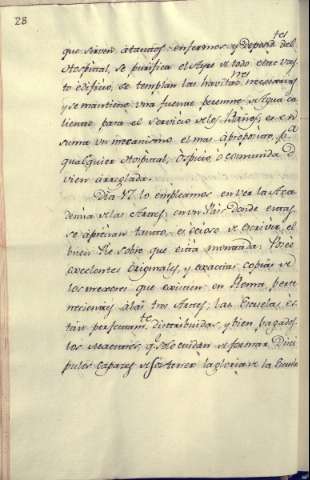 28
que sirven á tantos enfermos, y Deposi.tos del
Hospital, se purifica el Ayre de todo este vas
to edificio, se templan las havitacio.nes necesarias
y se mantiene una fuente perenne de Agua ca
liente para el servicio de los Baños, es en
suma un mecanismo el mas á proposito p.a
qualquier Hospital, Ospicio, o comunidad
vien arreglada.
Dia 17 lo empleamos en ver la Aca
demia de las Artes; en un Pais donde estas
se aprecian tanto, es ocioso de escrivir el
buen Pie sobre que está montada. Posee
excelentes originales, y exactas copias de
los mejores que existen en Roma, perte
necientes á las tres Artes; las Escuelas es
tán perfectam.te distribuidas, y bien pagados
los Maestros, q.e solo cuidan de formar Disci
pulos capaces de sostener la gloria de la Escue